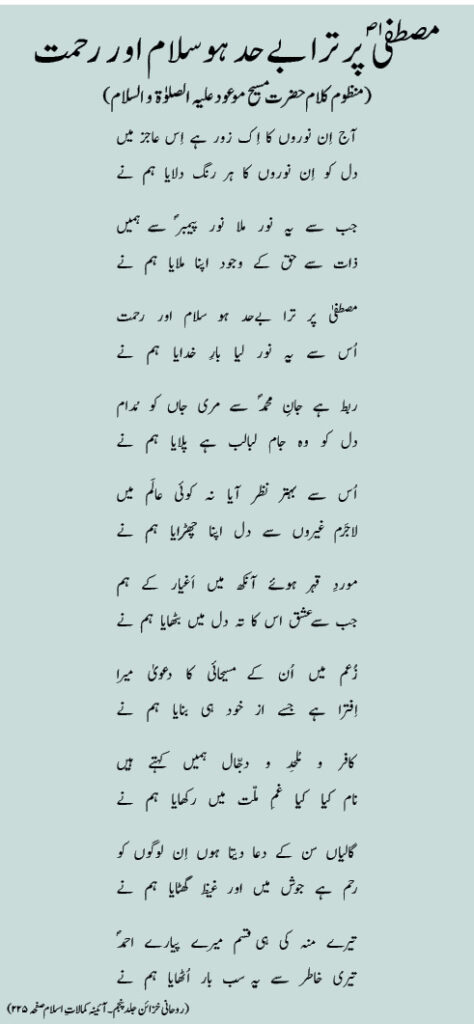 مصطفیٰؐ پر ترا بے حد ہو سلام اور رحمت
(منظوم کلام حضرت مسیح موعود علیہ الصلوٰۃ والسلام)
آج اِن نوروں کا اِک زور ہے اِس عاجز میں
دل کو اِن نوروں کا ہر رنگ دلایا ہم نے
جب سے یہ نور ملا نور پیمبرؐ سے ہمیں
ذات سے حق کے وجود اپنا ملایا ہم نے
مصطفیٰ پر ترا بےحد ہو سلام اور رحمت
اُس سے یہ نور لیا بارِ خدایا ہم نے
ربط ہے جانِ محمدؐ سے مری جاں کو مُدام
دل کو وہ جام لبالب ہے پلایا ہم نے
اُس سے بہتر نظر آیا نہ کوئی عالَم میں
لاجَرَم غیروں سے دل اپنا چھڑایا ہم نے
موردِ قہر ہوئے آنکھ میں اَغیار کے ہم
جب سے عشق اس کا تہ دل میں بٹھایا ہم نے
زُعم میں اُن کے مسیحائی کا دعویٰ میرا
اِفترا ہے جسے از خود ہی بنایا ہم نے
کافر و مُلحِد و دجّال ہمیں کہتے ہیں
نام کیا کیا غمِ ملّت میں رکھایا ہم نے
گالیاں سن کے دعا دیتا ہوں اِن لوگوں کو
رحم ہے جوش میں اور غیظ گھٹایا ہم نے
تیرے منہ کی ہی قسم میرے پیارے احمدؐ
تیری خاطر سے یہ سب بار اُٹھایا ہم نے
(روحانی خزائن جلد پنجم۔ آئینہ کمالات اسلام صفحہ ۲۲۵)